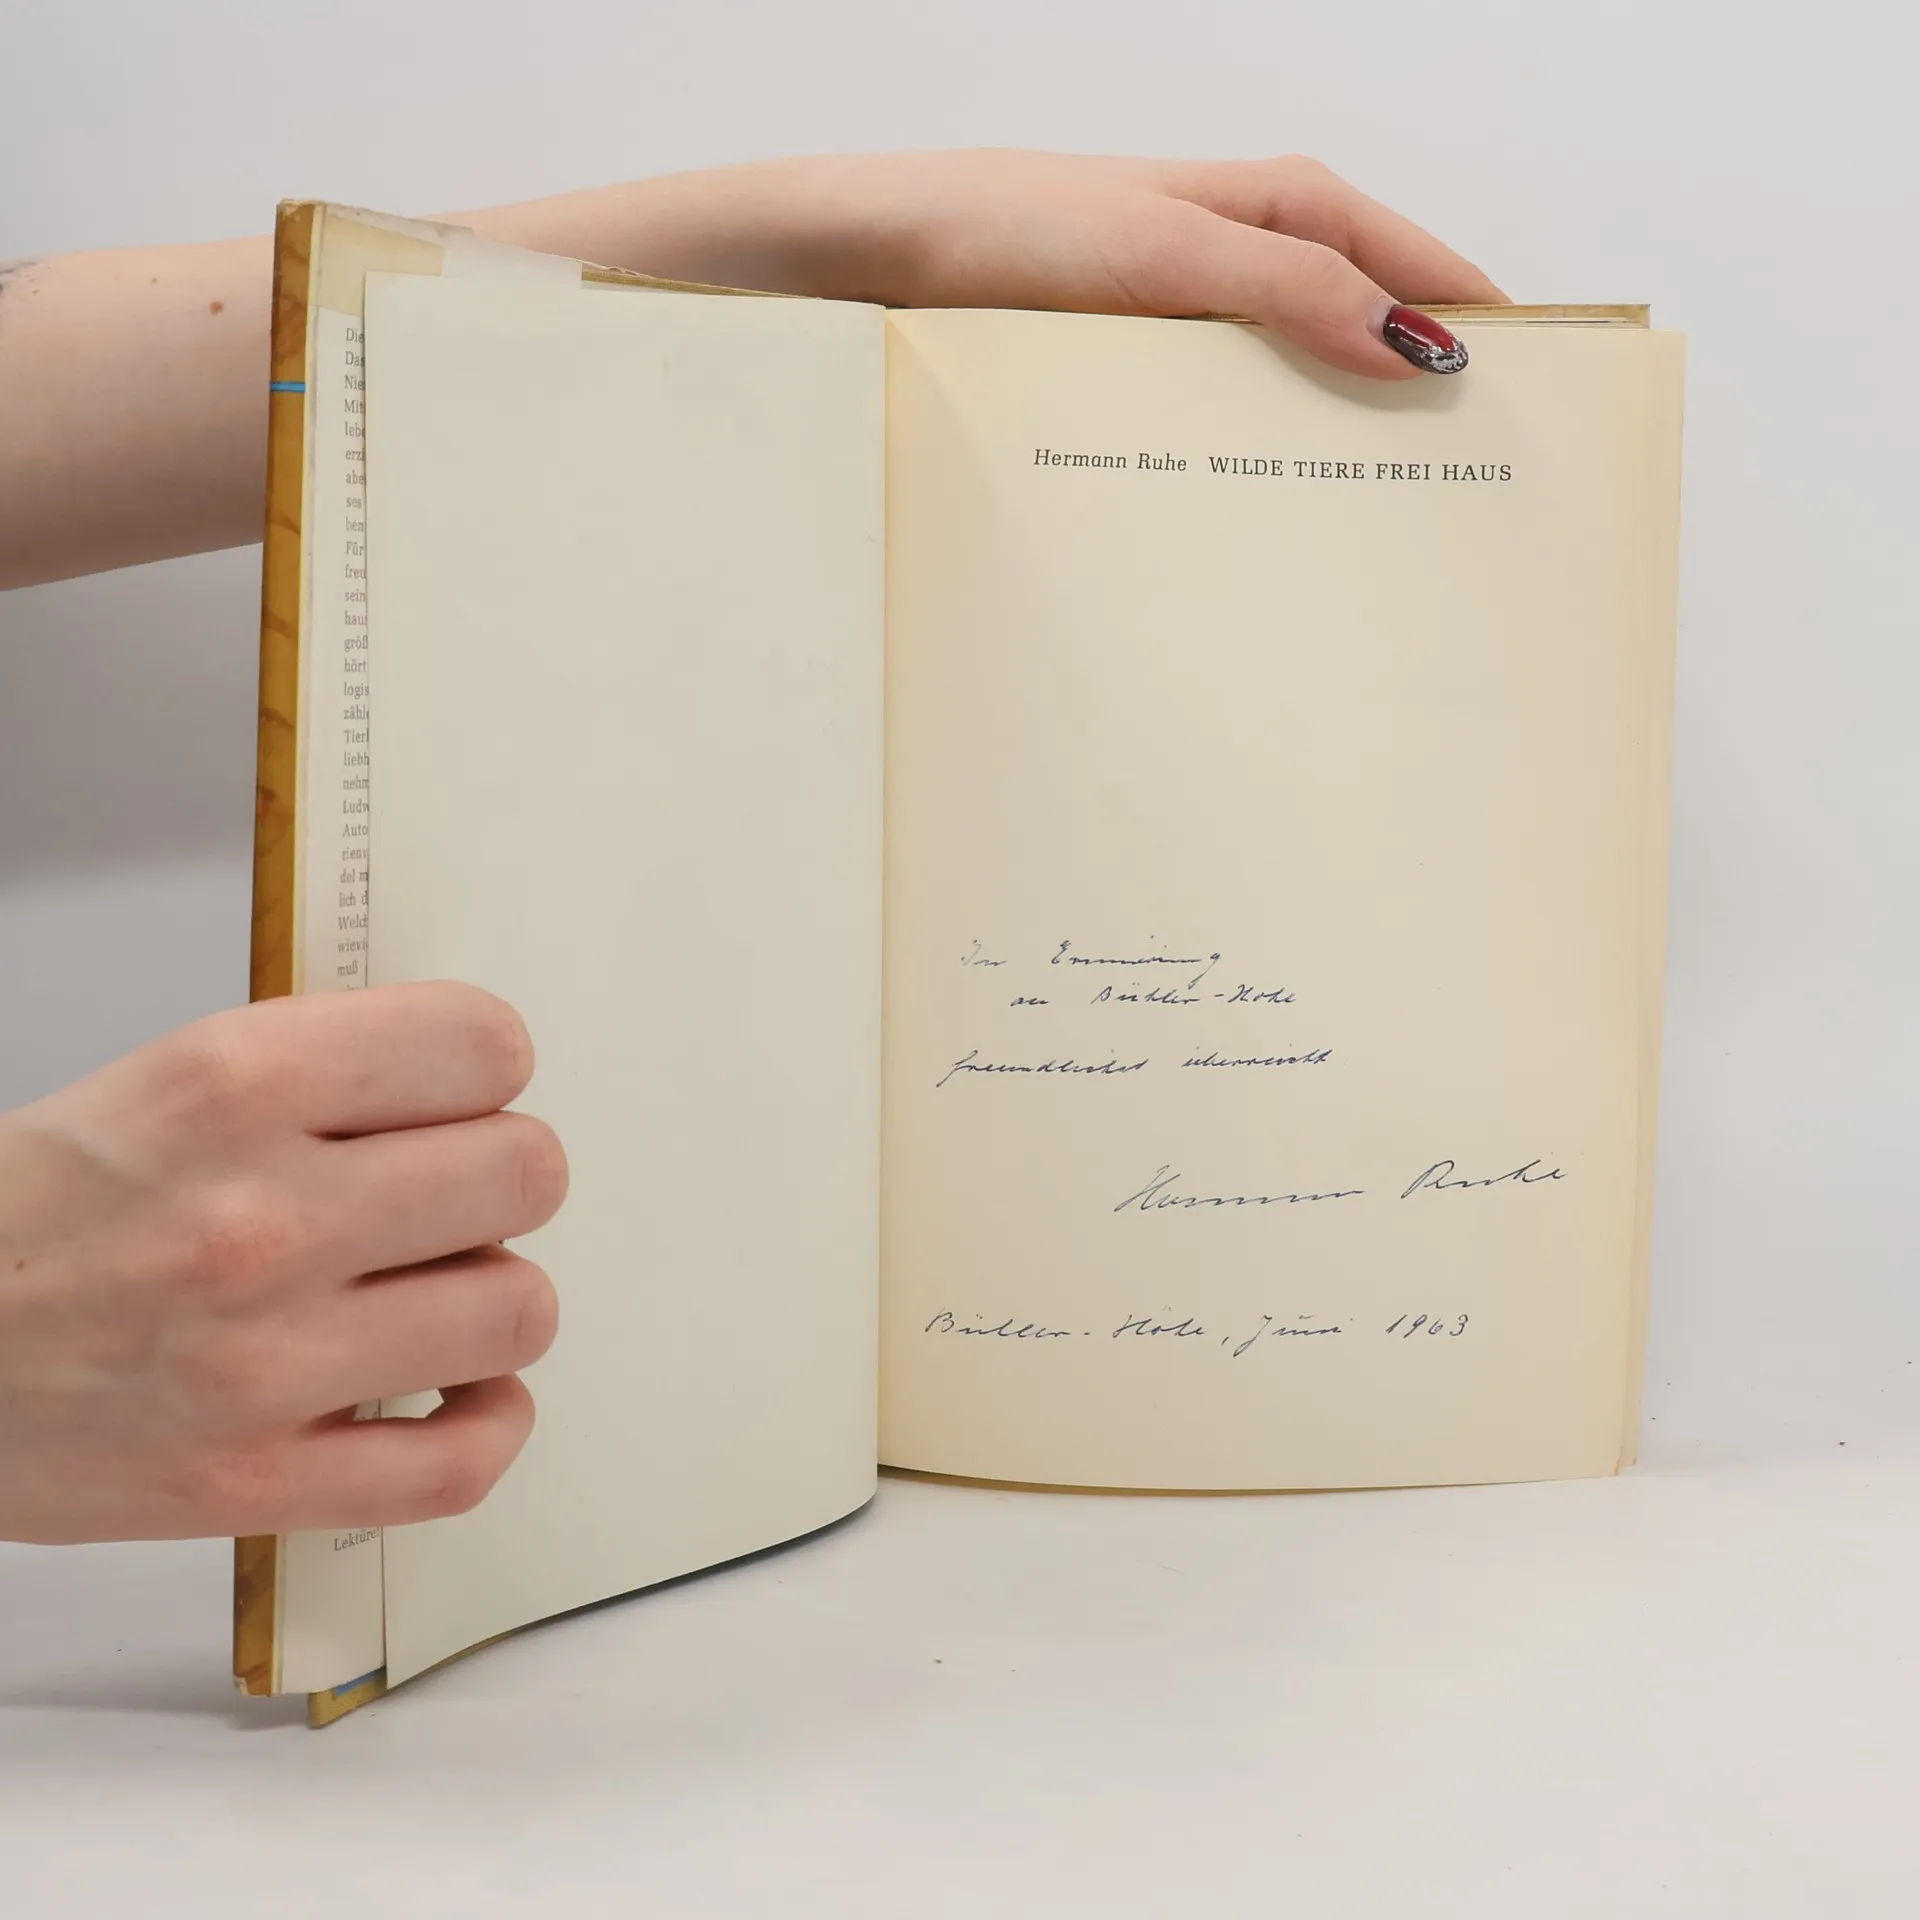 Die
Das
Nie
Mit
leb
erz
abe
ses
ben
Für
freu
sein
haus
größ
hört
logis
zähl
Tier
liebh
nehm
Ludw
Auto
rienv
del m
lich d
Welch
wievi
muß
Lektüre!
Hermann Ruhe WILDE TIERE FREI HAUS
In Erinnerung
an Bühler-Höhe
freundlichst überreicht
Hermann Ruhe
Bühler-Höhe, Juni 1963